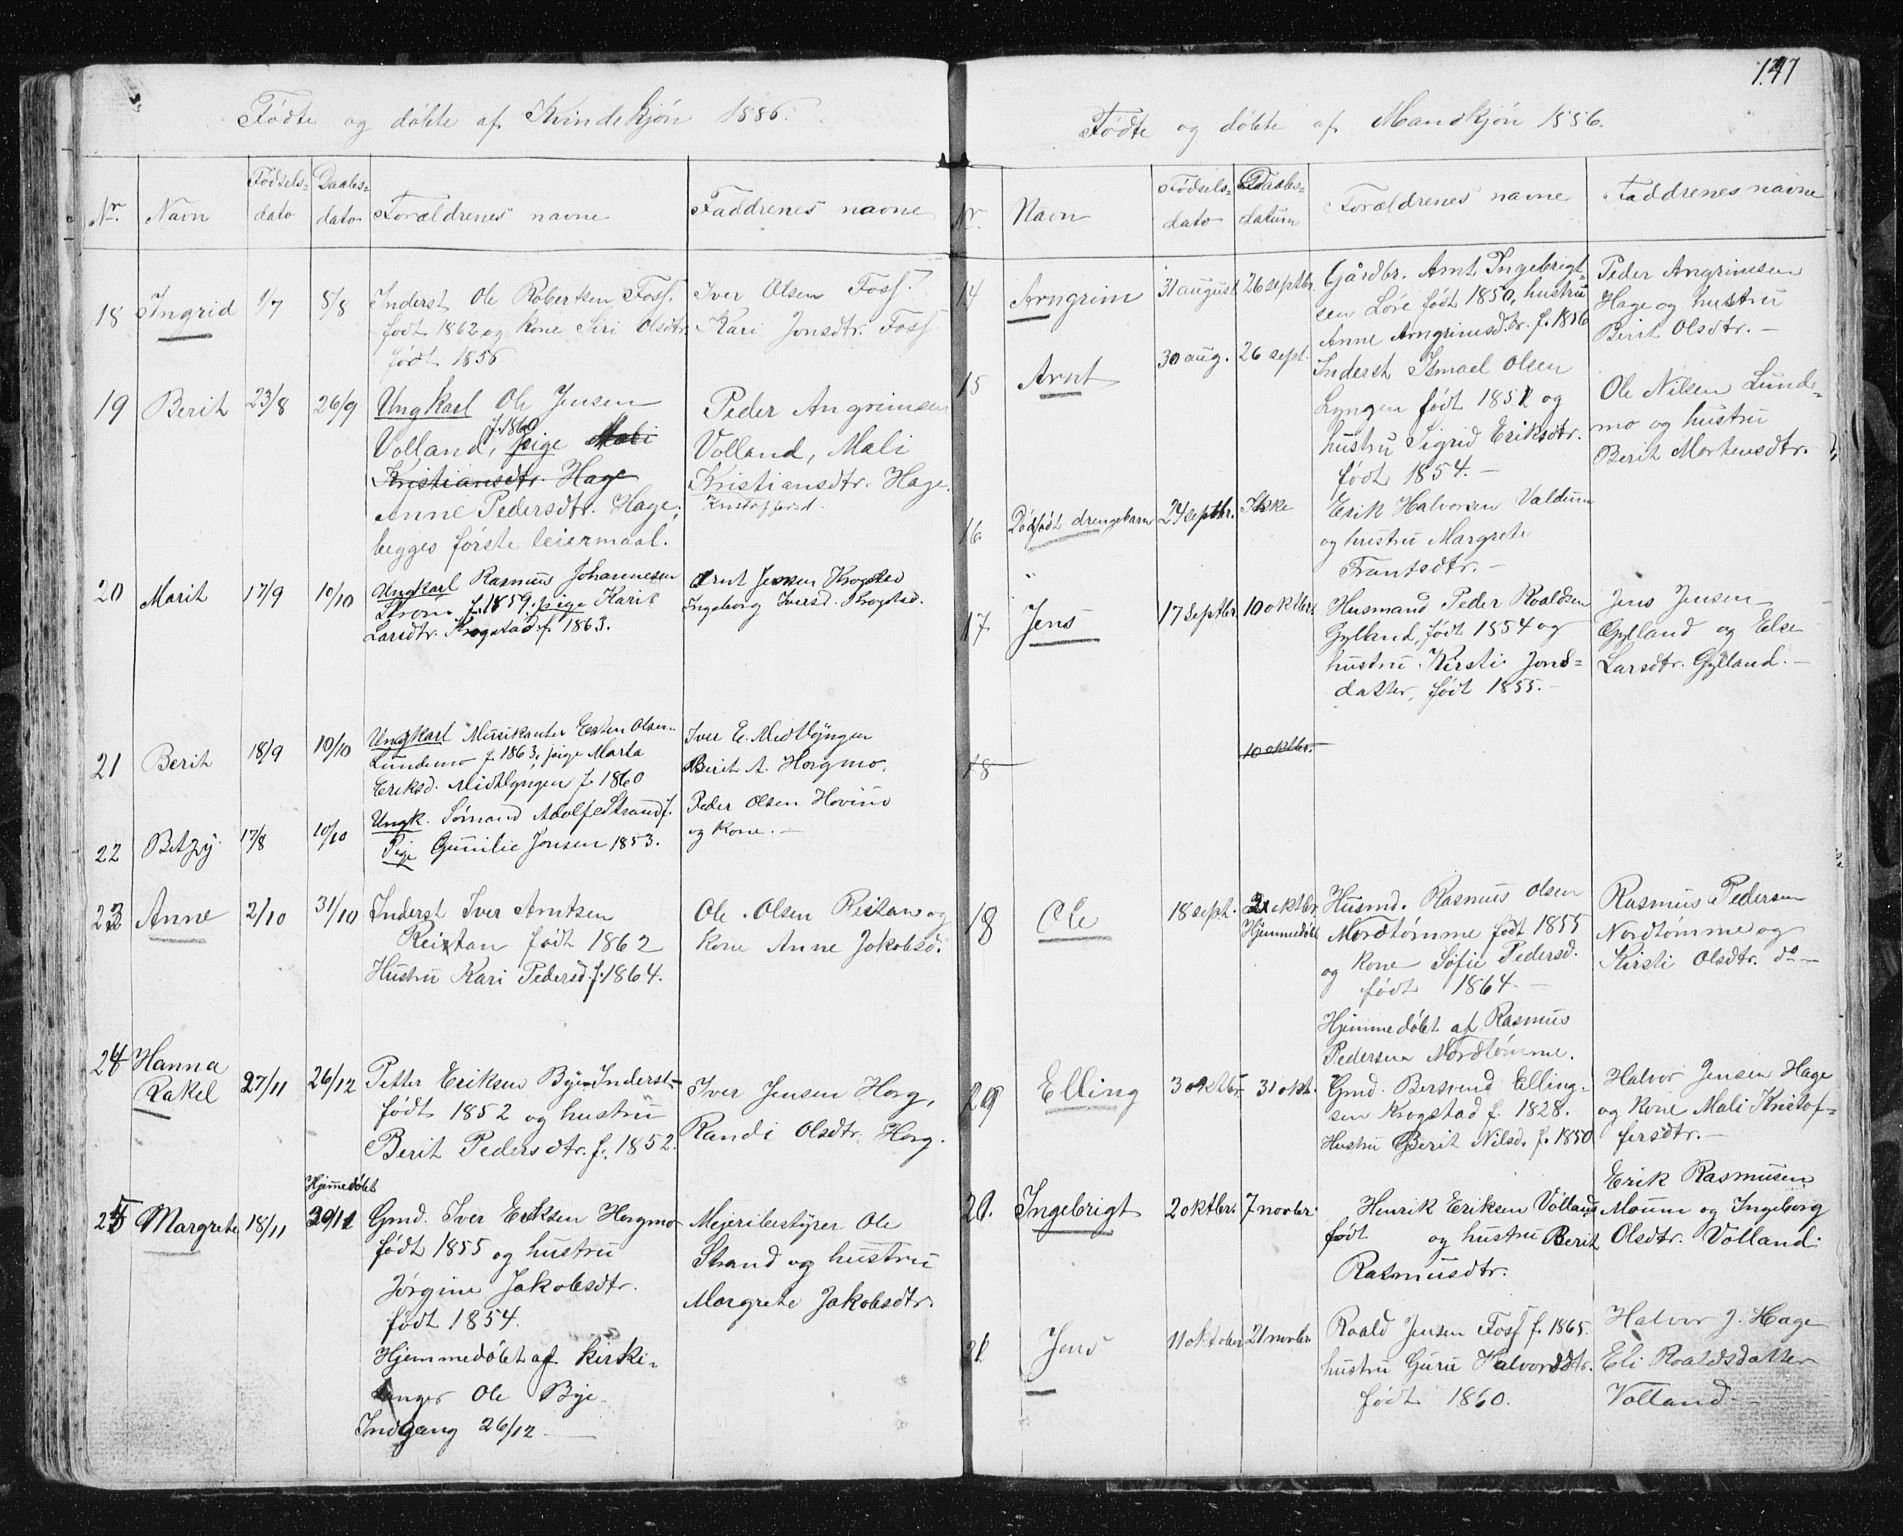 Fødte og døbte af Kvindekjøn 1886.
Nr.
Navn
Fødsels-
dato
Daabs-
dato
Forældrenes navne
Faddrenes navne
18
Ingrid
1/7
8/8
Inderst Ole Robertsen Foss.
født 1862 og kone Siri Olsdtr.
født 1856
Iver Olsen Foss.
Kari Jonsdtr. Foss.
19
Berit
23/8
26/9
Ungkarl Ole Jensen
f. 1860
Volland, pige Mali
Kristiansdtr. Hage
Anne Pedersdtr. Hage,
begges første leiermaal.
Peder Angrimsen
Volland, Mali
Kristiansdtr. Hage.
Kristoffersd.
20
Marit
17/9
10/10
Ungkarl Rasmus Johannesen
Strøm f. 1859, pige Kari
Larsdtr. Krogstad f. 1863.
Arnt Jensen Krogstad
Ingeborg Iversd. Krogstad.
21
Berit
18/9
10/10
Ungkarl Musikanter Esten Olsen
Lundemo f. 1863, pige Marta
Eriksd. Midtlyngen f. 1860
Iver E. Midtlyngen
Berit A. Horgmo.
22
Betzy
17/8
10/10
Ungk. Sømand Adolf Strand f.
Pige Gunilie Jonsen 1853.
Peder Olsen Hovin
og kone. —
23
Anne
2/10
31/10
Inderst Iver Arntsen
Reitan født 1862
Hustru Kari Pedersd. f. 1864.
Ole Olsen Reitan og
kone Anne Jakobsd.
24
Hanna
Rakel
27/11
26/12
Petter Eriksen Bye Inderst
født 1852 og hustru
Berit Pedersdtr. f. 1852.
Iver Jensen Horg,
Randi Olsdtr. Horg.
25
Margrete
18/11
Hjemmedøbt
Gmd. Iver Eriksen Horgmo
født 1855 og hustru
Jørgine Jakobsdtr.
født 1854.
Hjemmedøbt af kirke-
sanger Ole Bye.
Indgang 26/12 —
Meieribestyrer Ole
Strand og hustru
Margrete Jakobsdtr.
147
Fødte og døbte af Mandkjøn 1886.
Nr.
Navn
Fødsels-
dato
Daabs-
datum
Forældrenes navne
Faddrenes navne
14
Arngrim
31 august
26 septbr.
Gårdbr. Arnt Ingebrigt-
sen Lore født 1850, hustru
Anne Arngrimsdtr. f. 1856
Peder Angrimsen
Hage og hustru
Berit Olsdtr. —
15
Arnt
30 aug.
26 sept.
Inderst Ismael Olsen
Lyngen født 1851 og
hustru Sigrid Eriksdtr.
født 1854. —
Ole Nilsen Lunde-
mo og hustru
Berit Mortensdtr.
16.
Dødfødt drengebarn
24 septbr.
Ikke
Erik Halvorsen Valdum
og hustru Margrete
Frantsdtr. —
17.
Jens
17 septbr.
10 oktbr.
Husmand Peder Roaldsen
Gylland, født 1854 og
hustru Kirsti Jons-
datter, født 1855. —
Jens Jensen
Gylland og Else
Larsdtr. Gylland. —
18
10 oktbr.
18
Ole
18 sept.
31 oktbr.
Hjemmedøbt
Husmd. Rasmus Olsen
Nordtømme født 1855
og kone Sofie Pedersd.
født 1864. —
Hjemmedøbt af Rasmus
Pedersen Nordtømme.
Rasmus Pedersen
Nordtømme og
Kirsti Olsdtr. do —
Elling
3 oktbr.
31 okt.
Gmd. Bersvend Elling-
sen Krogstad f. 1828.
Hustru Berit Nilsd. f. 1850
Halvor Jensen Hage
og kone Mali Kristof-
fersdtr. —
20.
Ingebrigt
2 oktbr.
7 novbr.
Henrik Eriksen Volland
født og hustru Berit
Rasmusdtr.
Erik Rasmusen
Moum og Ingeborg
Olsdtr. Volland.
21.
Jens
11 oktober
21 novbr.
Roald Jensen Foss f. 1865.
hustru Guru Halvorsdtr.
født 1860.
Halvor J. Hage
Eli Roaldsdatter
Volland. —